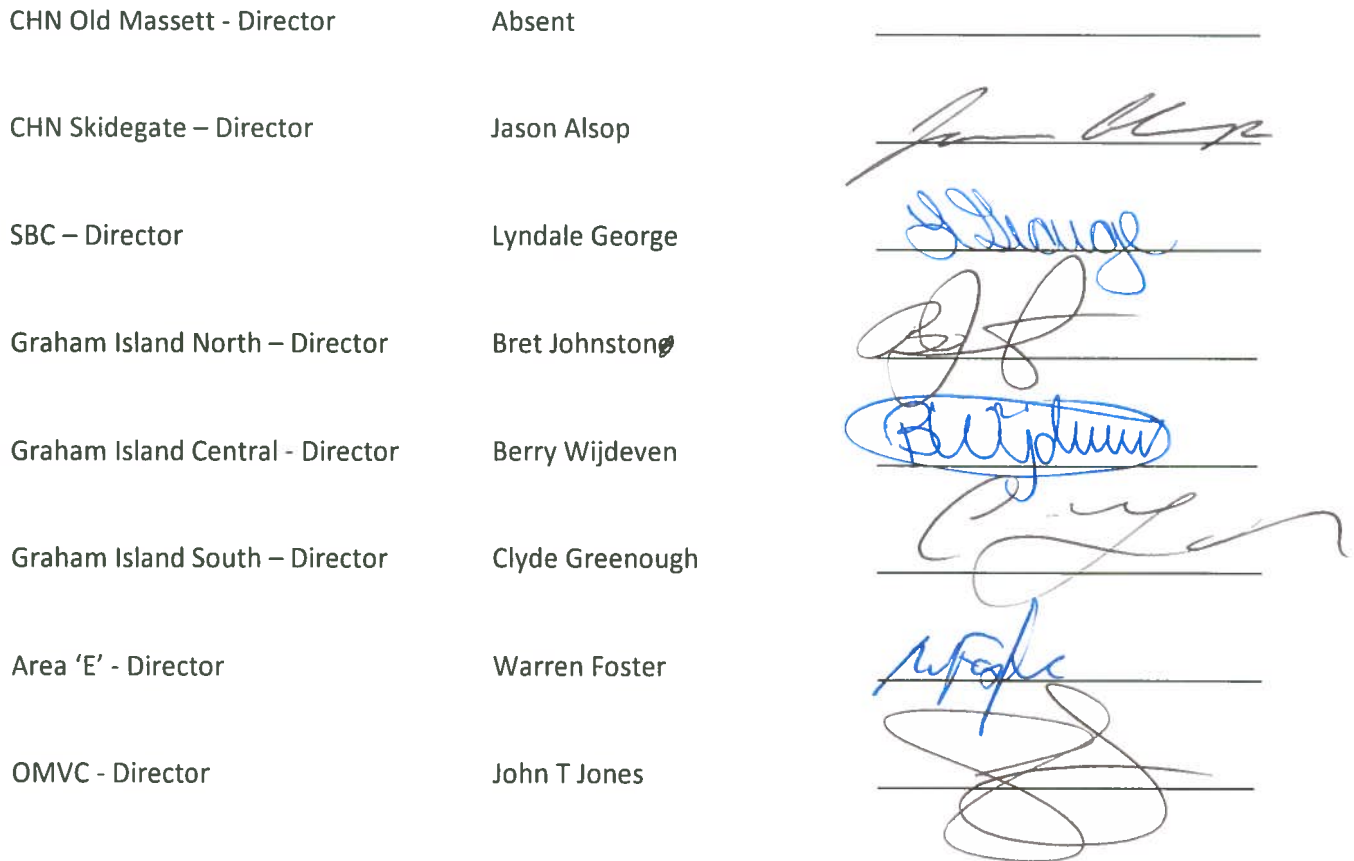 CHN Old Massett - Director Absent
CHN Skidegate – Director Jason Alsop
SBC – Director Lyndale George
Graham Island North – Director Bret Johnston
Graham Island Central - Director Berry Wijdeven
Graham Island South – Director Clyde Greenough
Area ‘E’ - Director Warren Foster
OMVC - Director John T Jones